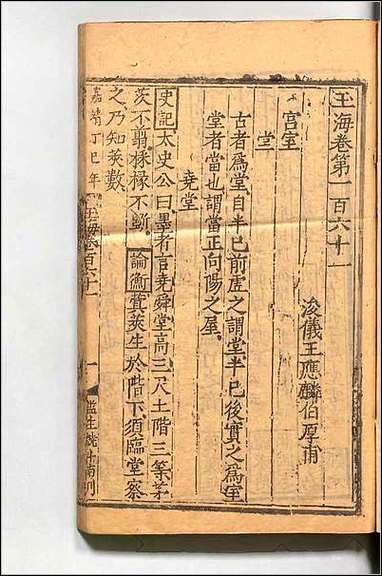 玉海卷第一百六十一
浚儀王應麟伯厚甫
宮室
堂
古者爲堂自半已前虛之謂堂半已後實之爲室
堂者當也謂當正向陽之屋
堯堂
史記太史公曰墨者言堯舜堂高三尺土階三等茅
茨不翦採椽不斲論衡蓂莢生於階下須臨堂察
之乃知莢數
嘉靖丁巳年
玉海卷百六十一
一
監生
刊